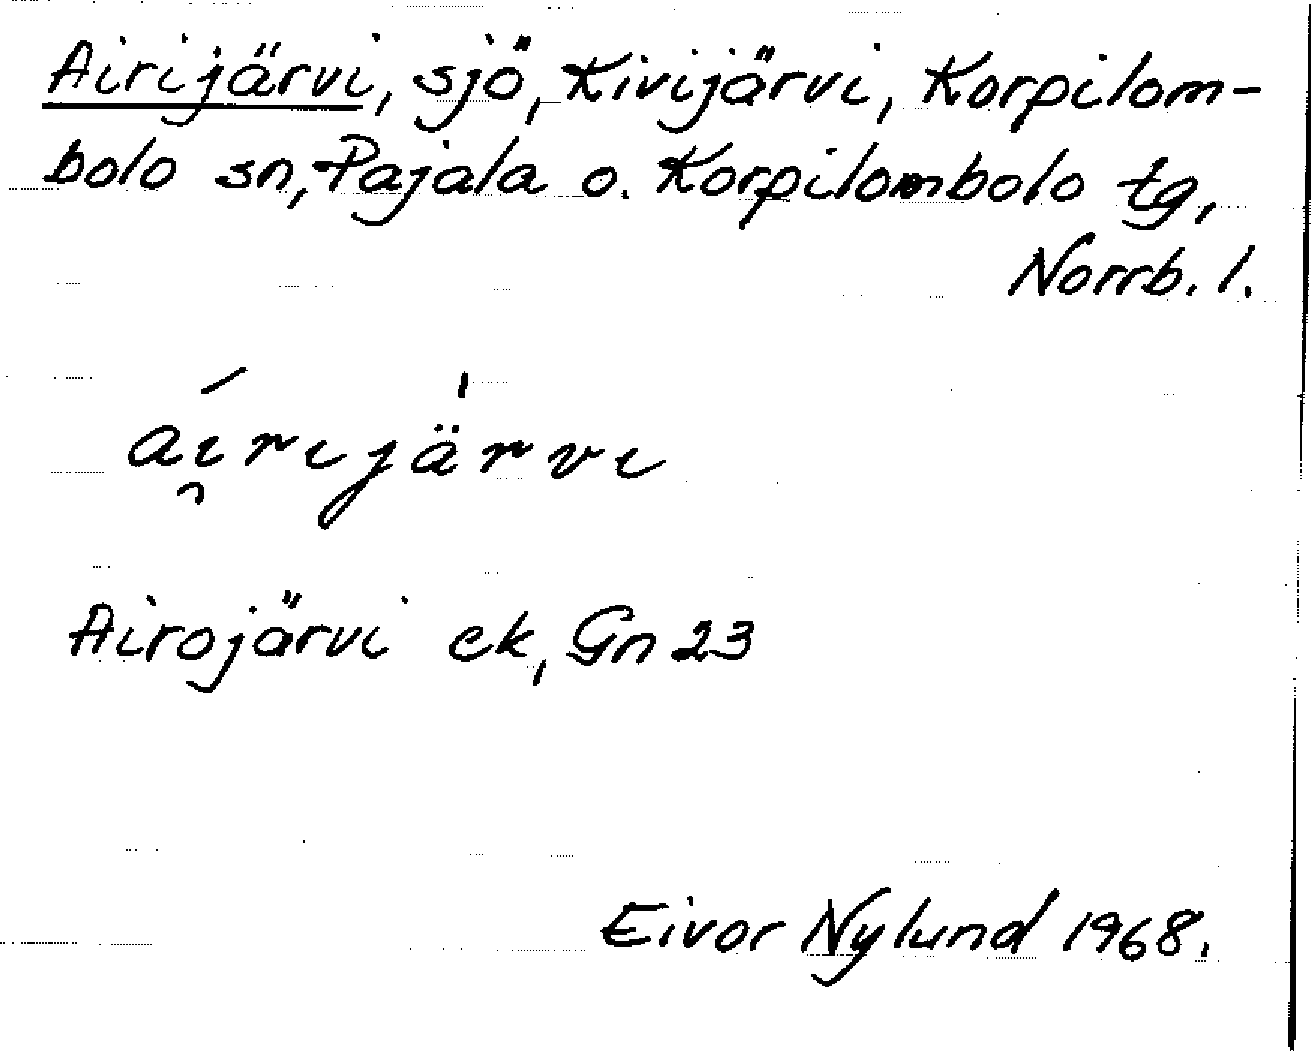 Airijärvi, sjö, Kivijärvi, Korpilom-
bolo sn, Pajala o. Korpilombolo tg,
Norrb. l.
ai̯rijärvi
Airojärvi ek, Gn 23
Eivor Nylund 1968.